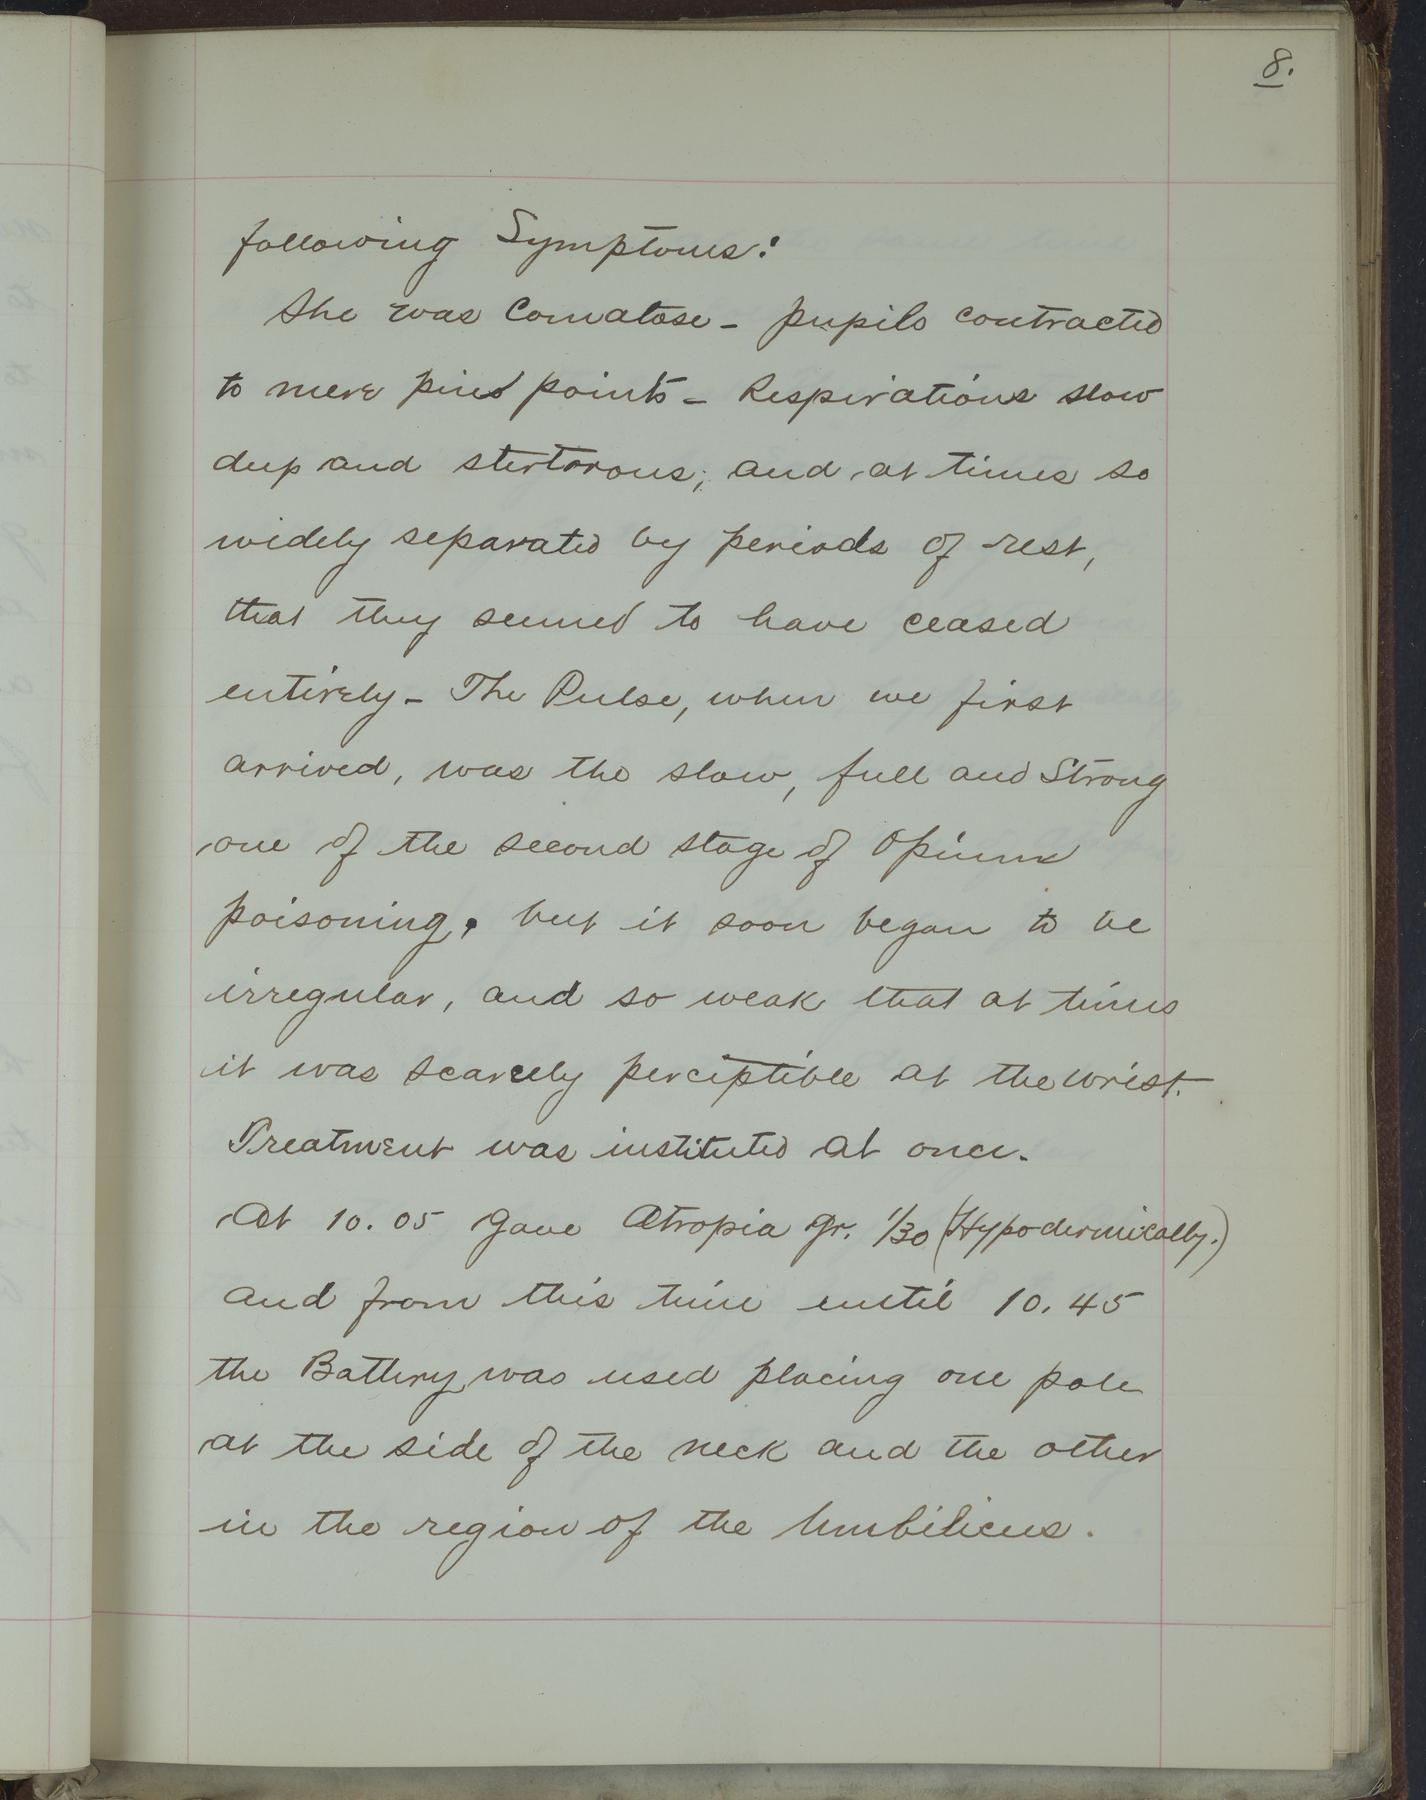 8.
following Symptoms:
She was Comatose - pupils contracted
to mere pin points - Respirations slow
deep and stertorous; and at times so
widely separated by periods of rest,
that they seemed to have ceased
entirely - The Pulse, when we first
arrived, was the slow, full and Strong
one of the second stage of Opium
poisoning, but it soon began to be
irregular, and so weak that at times
it was scarcely perceptible at the wrist.
Treatment was instituted at once.
At 10.05 gave Atropia gr. 1/30 (Hypodermically.)
and from this time until 10.45
the Battery was used placing one pole
at the side of the neck and the other
in the region of the Umbilicus.